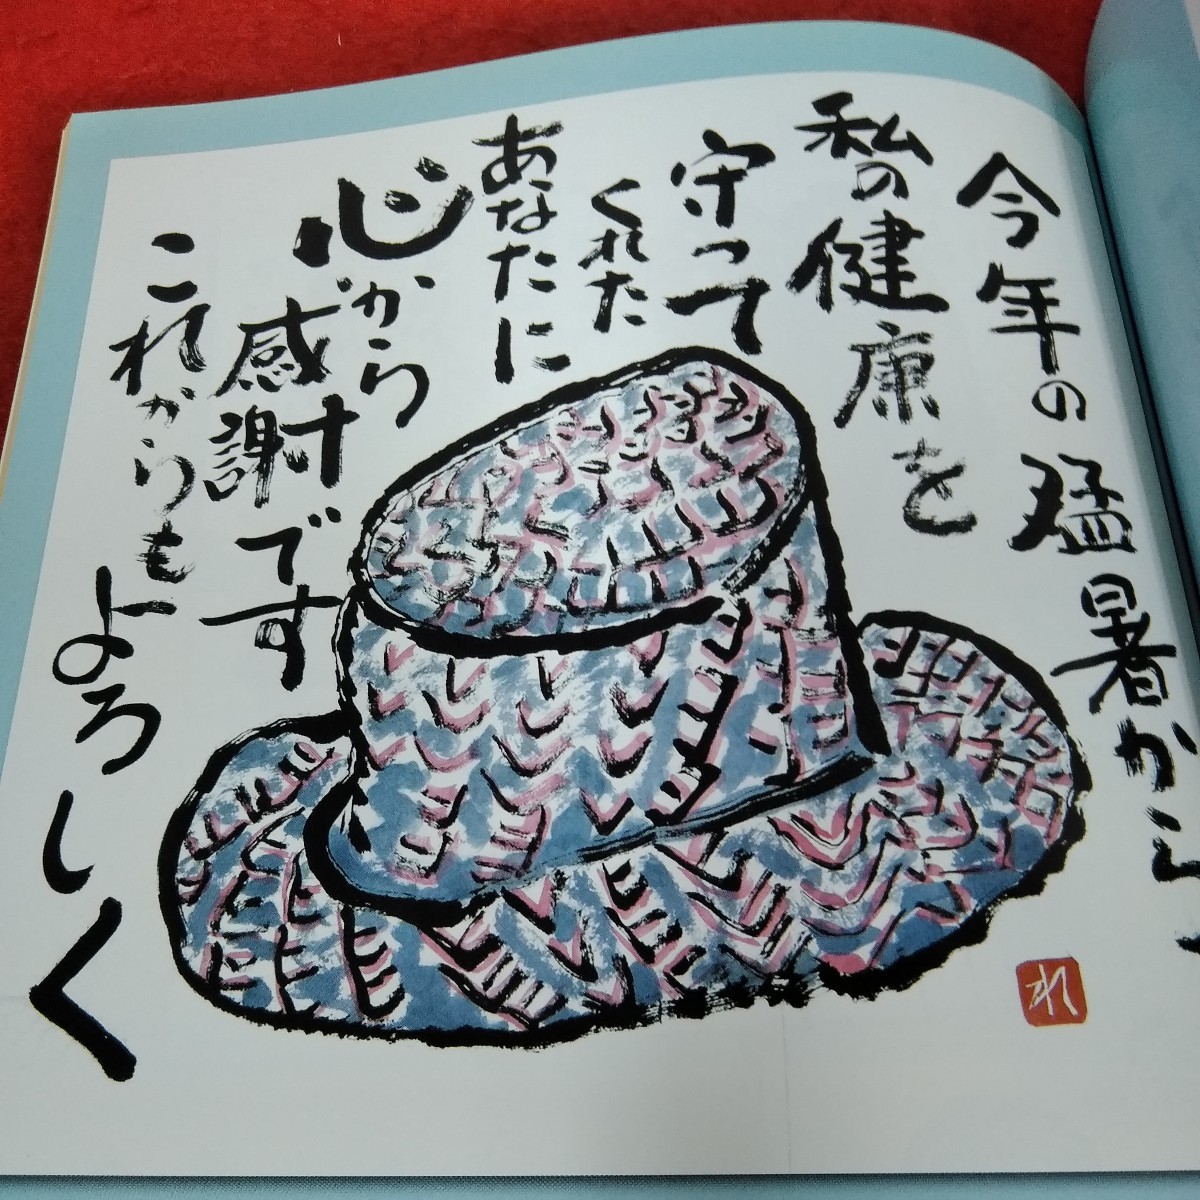 今年の猛暑から
私の健康を
守って
くれた
あなたに
心から
感謝です
これからも
よろしく
れ